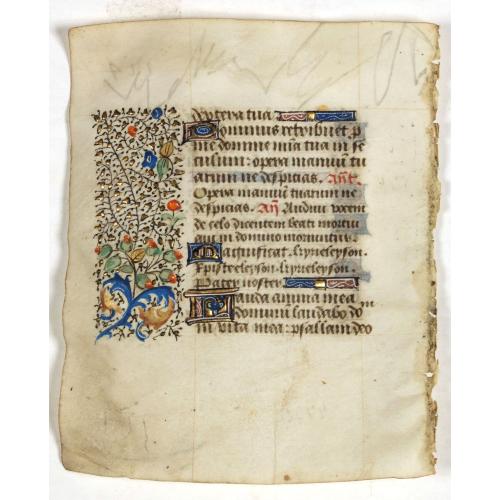 opera tua
Dominus retribuet p
me domine mia tua in se
culum: opera manuū tu
arum ne despicias. Añt.
Opera manuū tuarum ne
despicias. Añ Audivi vocem
de celo dicentem beati mortui
qui in domino moriuntur.
Magnificat. kyrieleyson.
Xpisteeleyson. kyrieleyson.
Pater noster
Lauda anima mea
dominum laudabo do
in vita mea: psallam deo